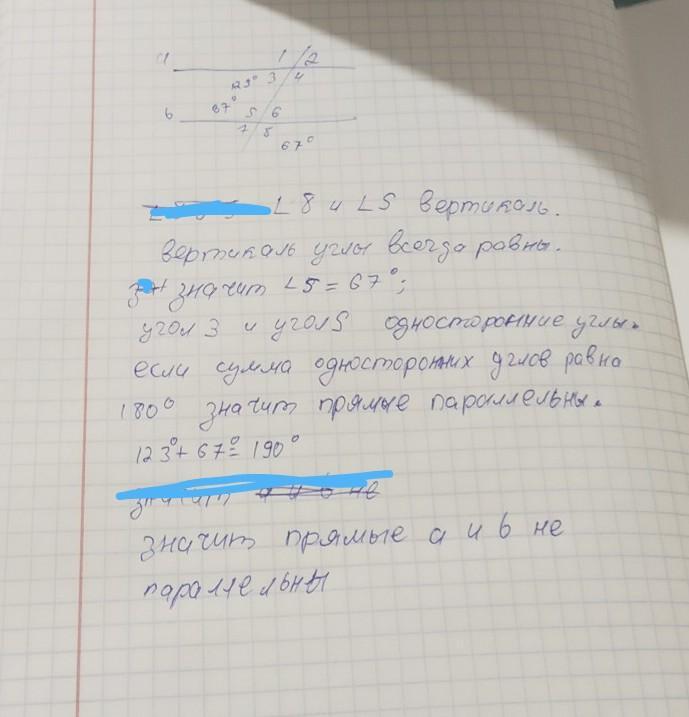 a 1 2
123° 3 4
b 67° 5 6
7 8
67°
∠8 и ∠5 вертикаль.
вертикаль углы всегда равны.
значит ∠5 = 67°;
угол 3 и угол 5 односторонние углы.
если сумма односторонних углов равна
180° значит прямые параллельны.
123° + 67° = 190°
значит а и b не
значит прямые а и b не
параллельны